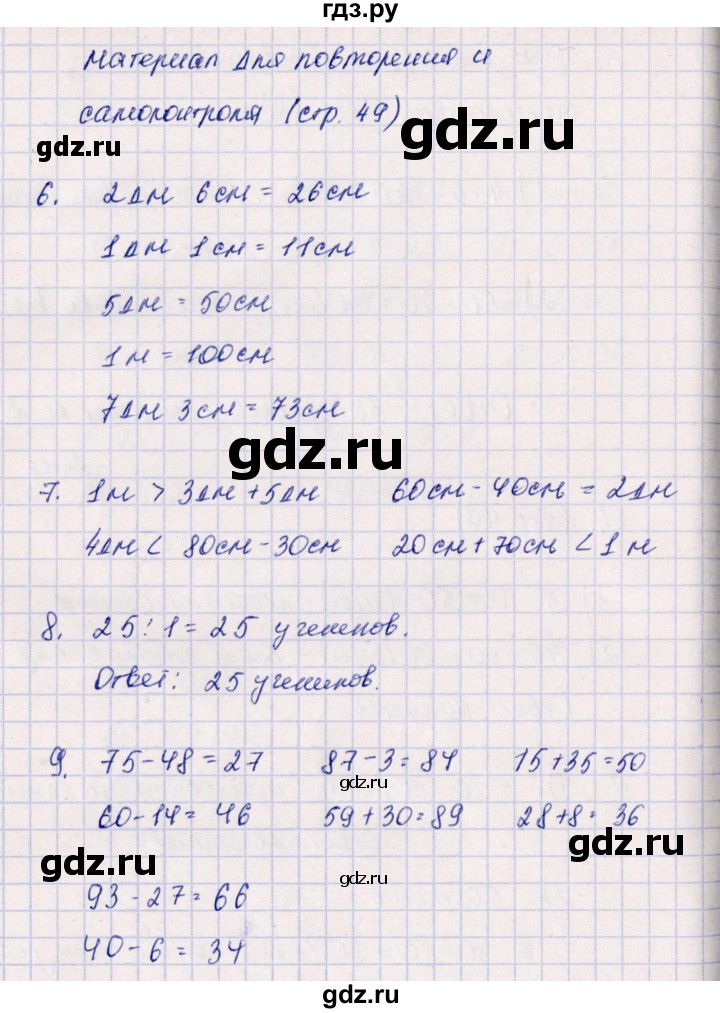 гдз.ру
Материал для повторения и
самоконтроля (стр. 49)
gdz.ru
gdz.ru
6. 2дм 6см = 26см
1дм 1см = 11см
5дм = 50см
1м = 100см
7дм 3см = 73см
gdz.ru
7. 1м > 3дм + 5дм 60см - 40см = 2дм
4дм < 80см - 30см 20см + 70см < 1м
8. 25 : 1 = 25 учеников.
Ответ: 25 учеников.
9. 75 - 48 = 27 87 - 3 = 84 15 + 35 = 50
gdz.ru
60 - 14 = 46 59 + 30 = 89 28 + 8 = 36
gdz.ru
gdz.ru
gdz.ru
93 - 27 = 66
40 - 6 = 34
gdz.ru